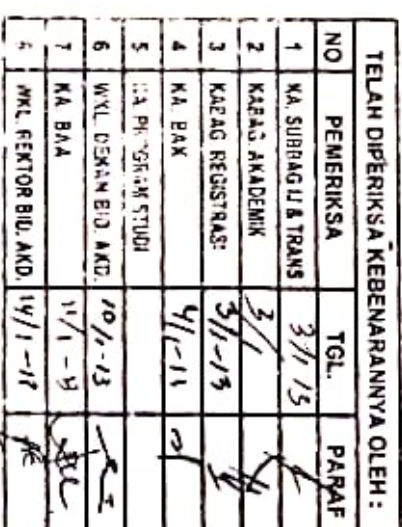 TELAH DIPERIKSA KEBENARANNYA OLEH :
NO PEMERIKSA TGL. PARAF
1 KA. SUBBAG U & TRANS 3/1 13
2 KABAG. AKADEMIK 3/1
3 KABAG REGISTRASI 3/1-13
4 KA. BAK 4/1-13
5 KA. PROGRAM STUDI
6 WKL. DEKAN BID. AKD. 10/1-13
7 KA BAA 11/1-13
8 WKL. REKTOR BID. AKD. 14/1-13